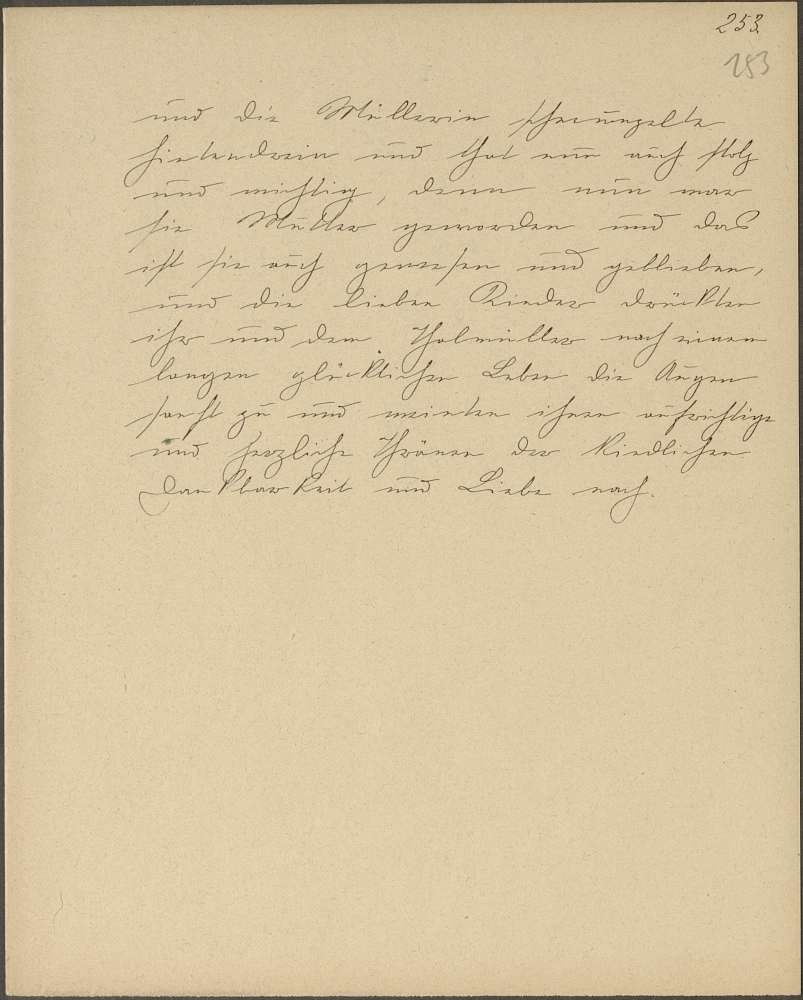 253.
253
und die Müllerin schmunzelte
hintendrein und that nun auch stolz
und wichtig, denn nun war
sie Mutter geworden und das
ist sie auch gewesen und geblieben,
und die lieben Kinder drückten
ihr und dem Thalmüller nach einem
langen glücklichen Leben die Augen
sanft zu und weinten ihnen aufrichtige
und herzliche Thränen der kindlichen
Dankbarkeit und Liebe nach.